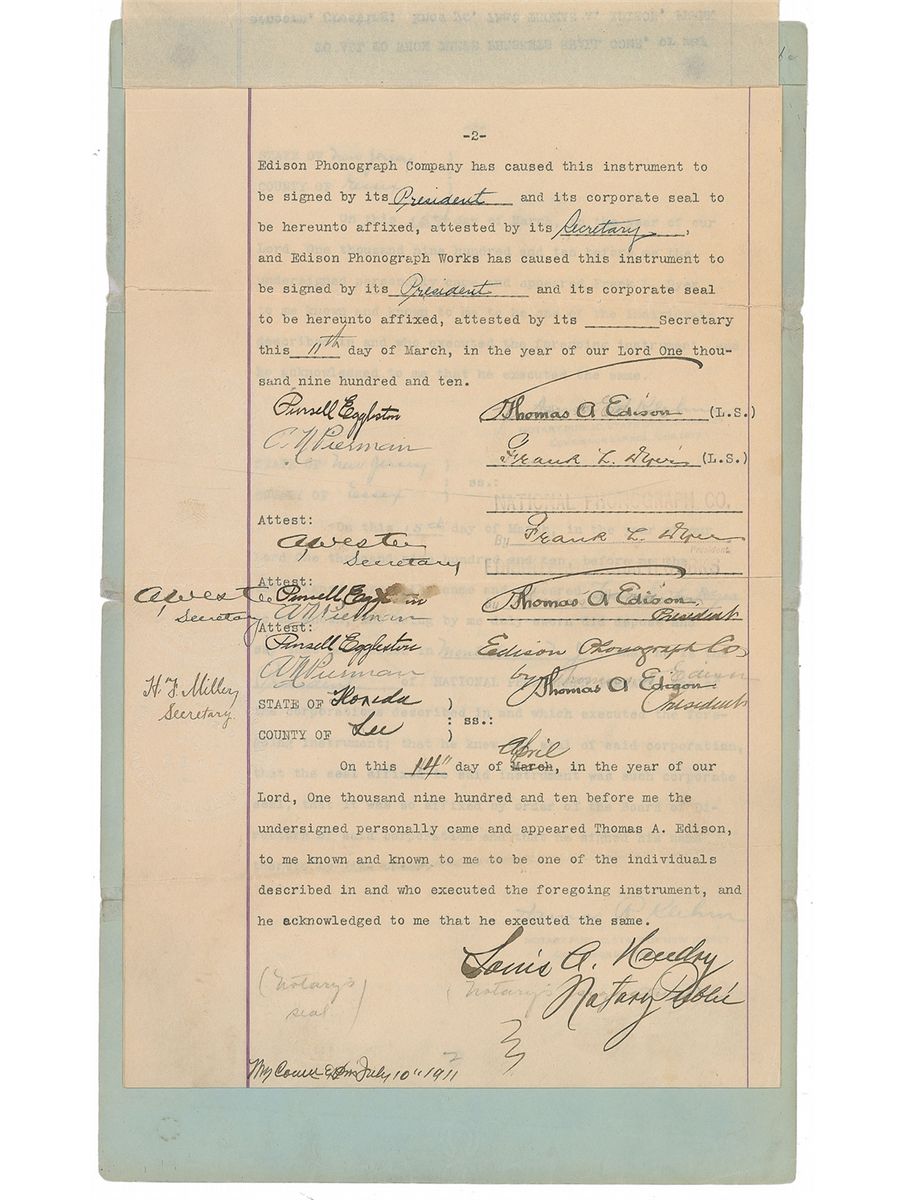 -2-
Edison Phonograph Company has caused this instrument to
be signed by its President and its corporate seal to
be hereunto affixed, attested by its Secretary,
and Edison Phonograph Works has caused this instrument to
be signed by its President and its corporate seal
to be hereunto affixed, attested by its ________Secretary
this 11th day of March, in the year of our Lord One thou-
sand nine hundred and ten.
Pursell Eggleston Thomas A Edison (L.S.)
Pierman Frank L. Dyer (L.S.)
: ss.:
NATIONAL PHONOGRAPH CO.
Attest:
By Frank L. Dyer
President
Secretary
Attest:
Pursell Eggleston Thomas A Edison
Secretary Pierman President
Attest:
Pursell Eggleston Edison Phonograph Co
Pierman by Thomas A Edison
H. F. Miller, President
Secretary.
STATE OF Florida )
: ss.:
COUNTY OF Lee )
April
On this 14" day of March, in the year of our
Lord, One thousand nine hundred and ten before me the
undersigned personally came and appeared Thomas A. Edison,
to me known and known to me to be one of the individuals
described in and who executed the foregoing instrument, and
he acknowledged to me that he executed the same.
Louis A. Hendry
Notary Public
(Notary's
seal)
My Comm July 10" 1911